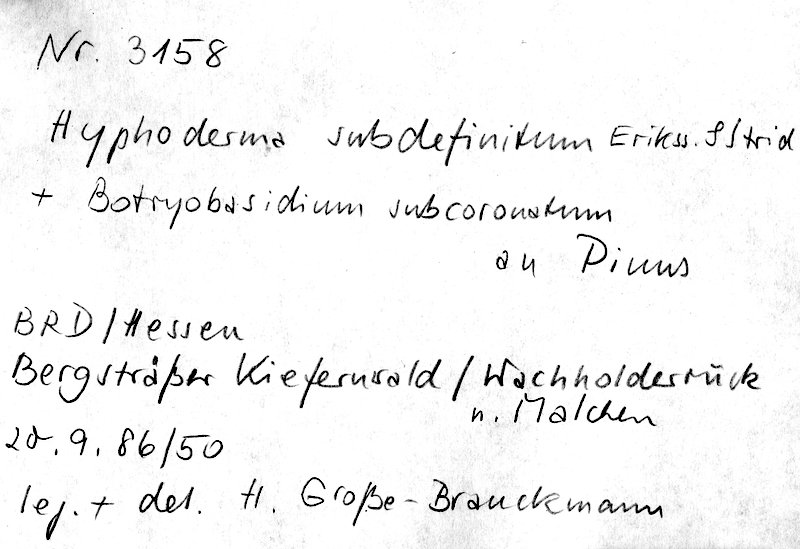 Nr. 3158
Hyphoderma subdefinitum Erikss. & Strid
+ Botryobasidium subcoronatum
an Pinus
BRD/Hessen
Bergsträßer Kiefernwald / Wachholderrück
n. Malchen
20.9.86/50
leg. + det. H. Große-Brauckmann